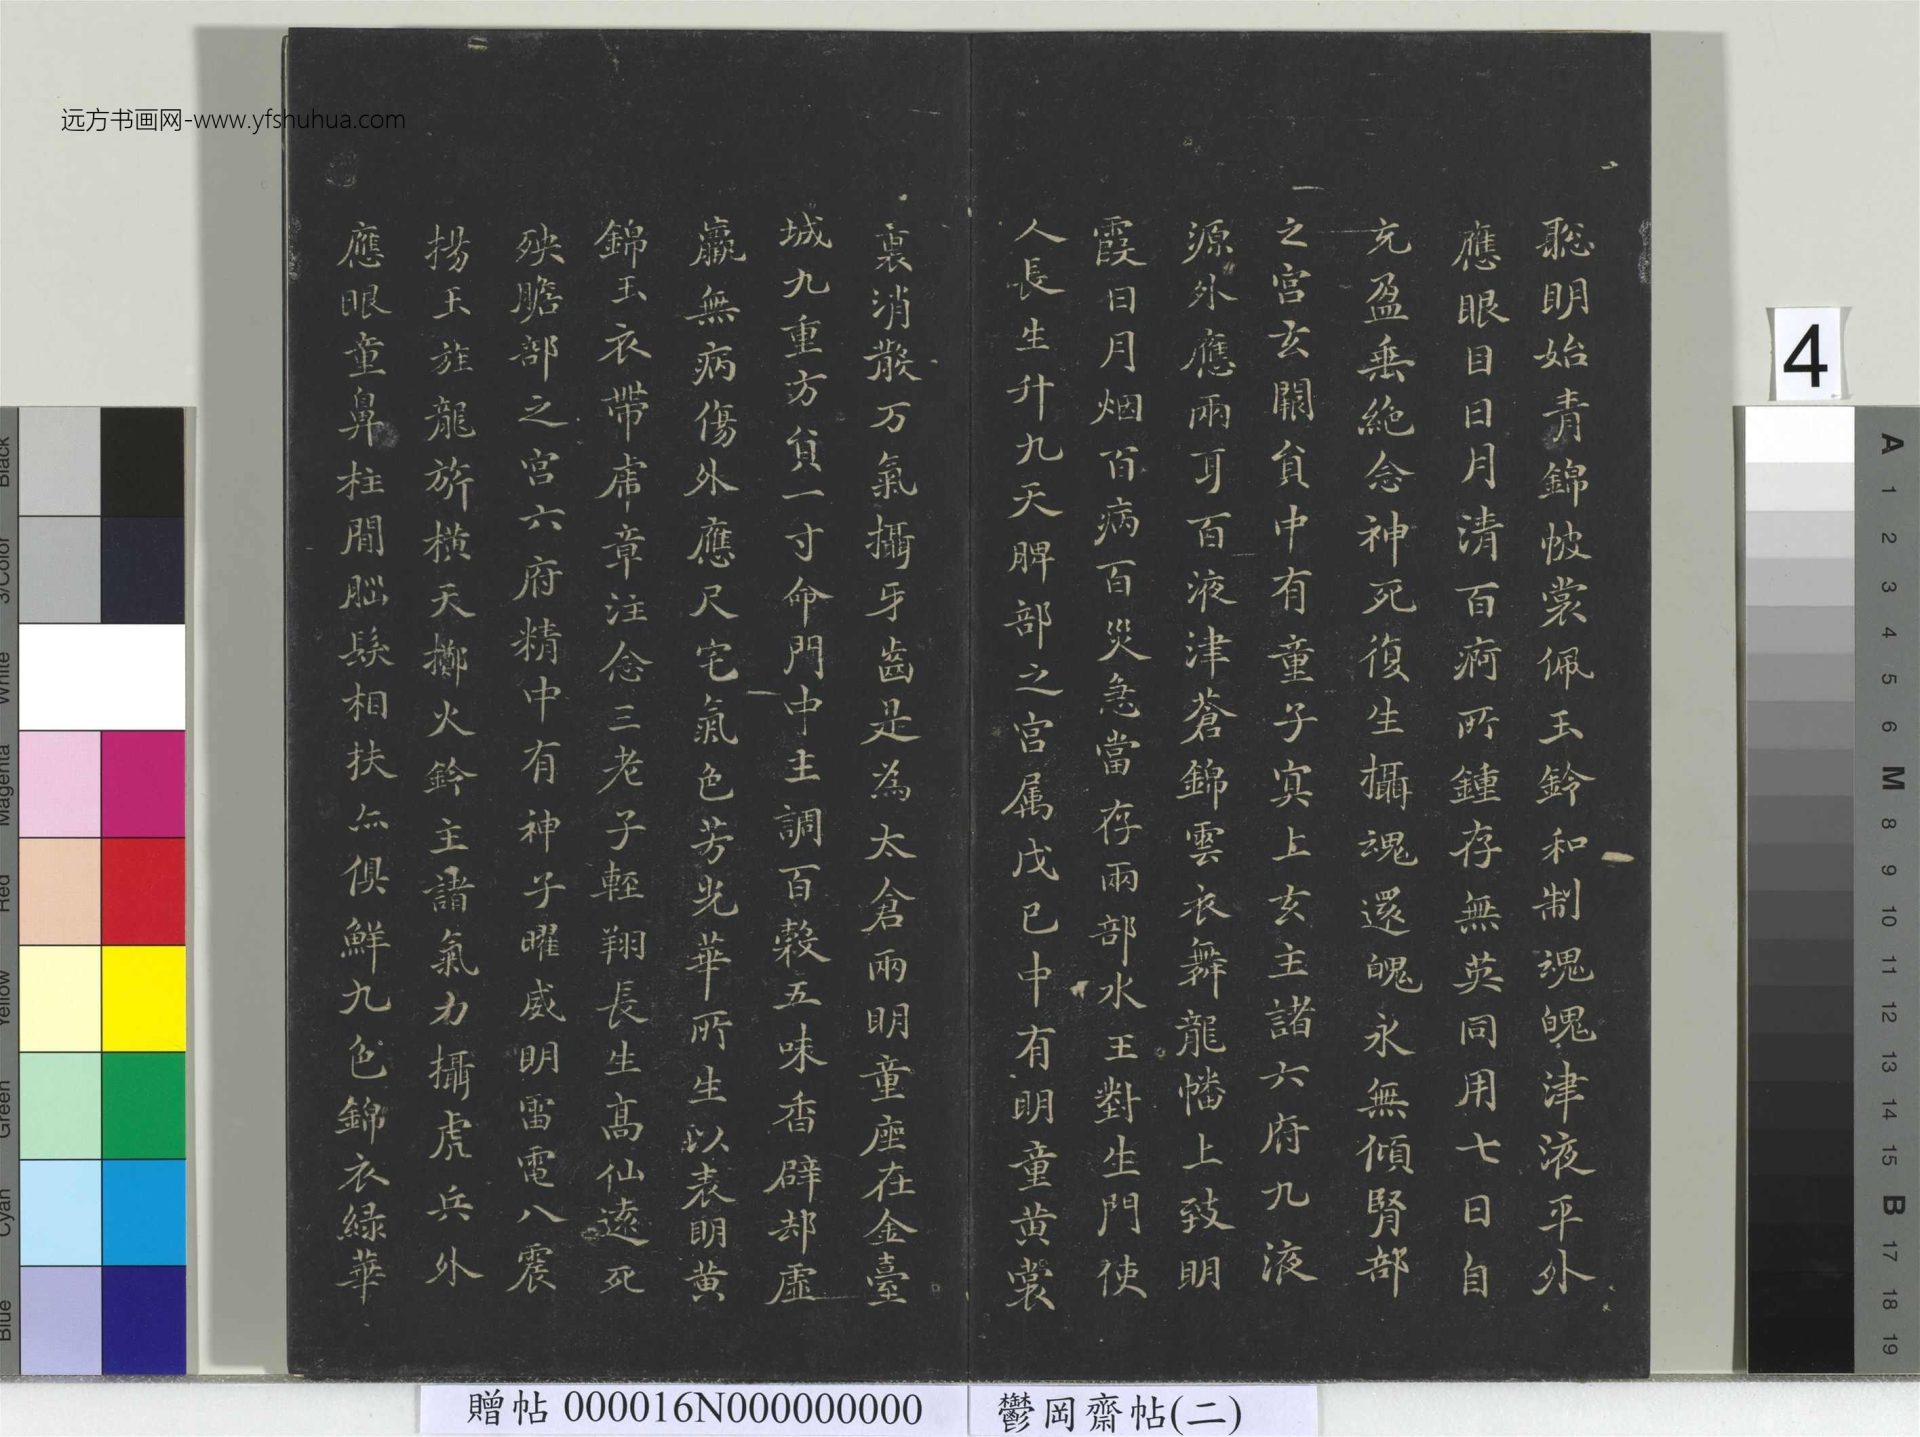 远方书画网-www.yfshuhua.com
聡明始青錦帔裳佩玉鈴和制魂魄津液平外
應眼目日月清百痾所鍾存無英同用七日自
充盈垂絶念神死復生攝魂還魄永無傾腎部
之宮玄闕貟中有童子㝠上玄主諸六府九液
源外應兩耳百液津蒼錦雲衣舞龍幡上致明
霞日月烟百病百災急當存兩部水王對生門使
人長生升九天脾部之宮属戊已中有明童黄裳
裏消散万氣攝牙齒是為太倉兩明童座在金臺
城九重方貟一寸命門中主調百穀五味香辟却虛
羸無病傷外應尺宅氣色芳光華所生以表明黄
錦玉衣帶席章注念三老子輕翔長生髙仙遠死
殃膽部之宮六府精中有神子曜威明雷電八震
揚玉旌龍旂横天擲火鈴主諸氣力攝虎兵外
應眼童鼻柱間腦髮相扶亦俱鮮九色錦衣緑華
4
Black
3/Color
White
Magenta
Red
Yellow
Green
Cyan
Blue
A
1
2
3
4
5
6
M
8
9
10
11
12
13
14
15
B
17
18
19
贈帖 000016N000000000
鬱岡齋帖(二)